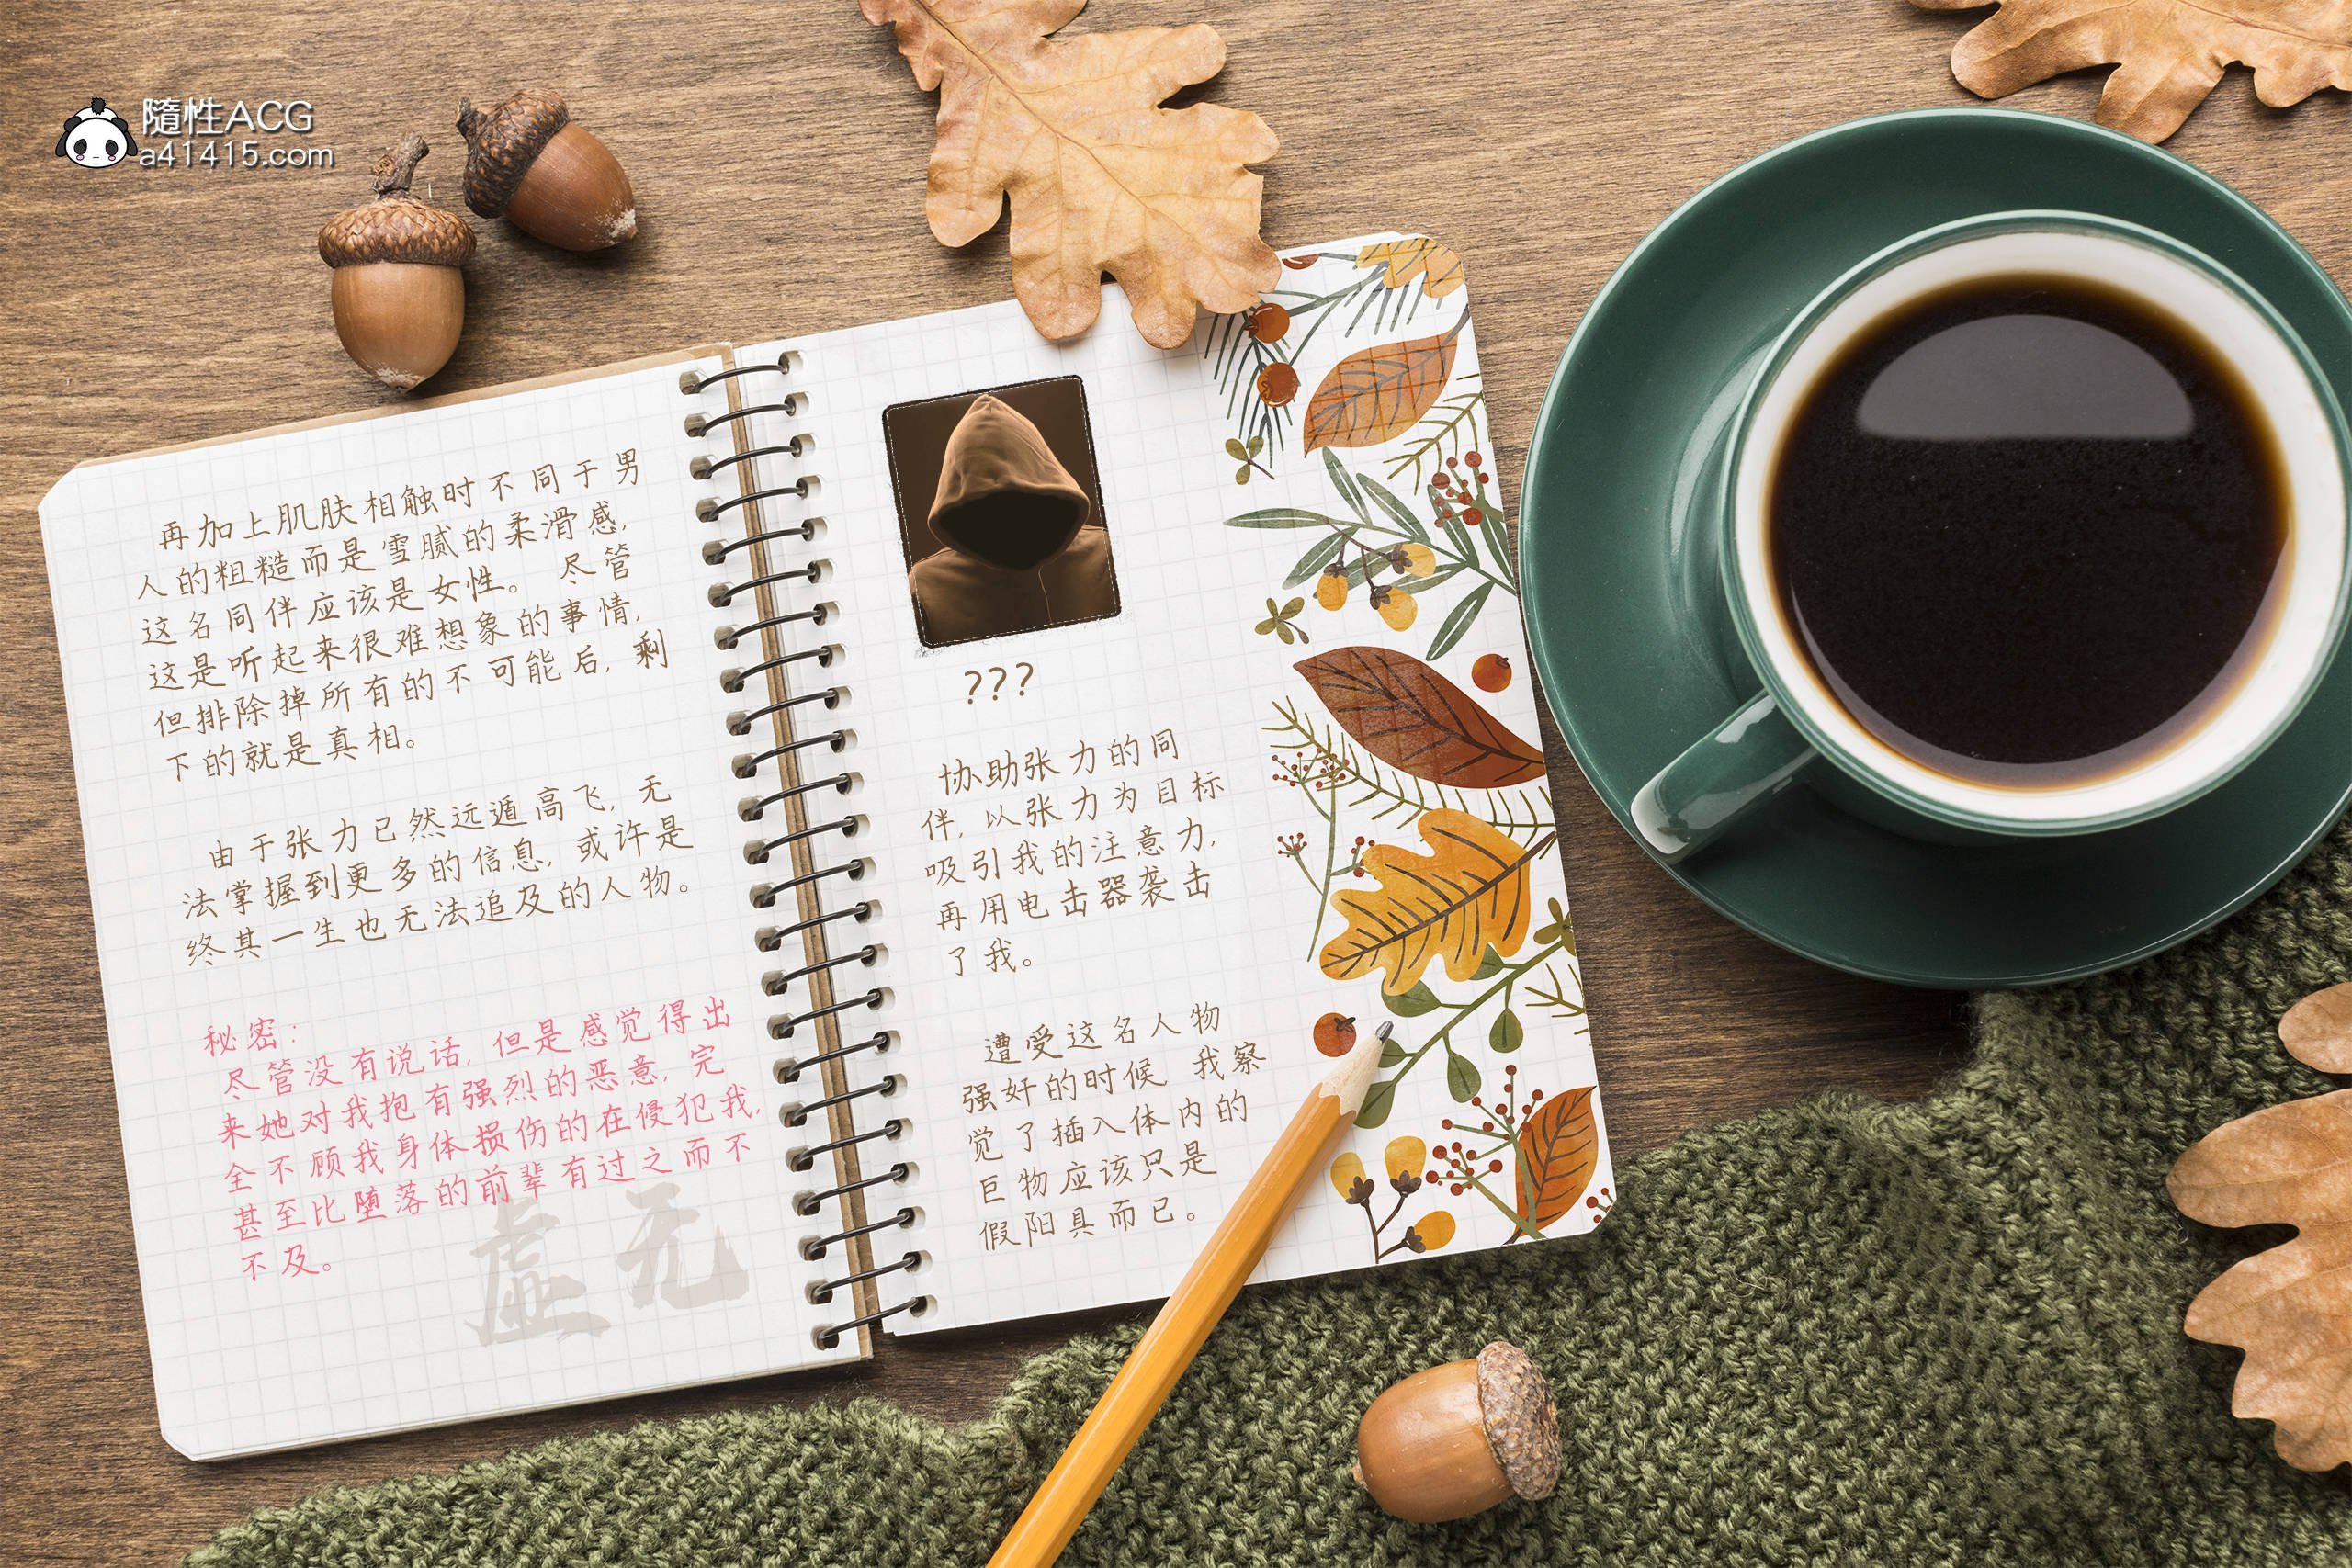 隨性ACG
a41415.com
再加上肌肤相触时不同于男
人的粗糙而是雪腻的柔滑感，
这名同伴应该是女性。 尽管
这是听起来很难想象的事情，
但排除掉所有的不可能后，剩
下的就是真相。
由于张力已然远遁高飞，无
法掌握到更多的信息，或许是
终其一生也无法追及的人物。
秘密：
尽管没有说话，但是感觉得出
来她对我抱有强烈的恶意，完
全不顾我身体损伤的在侵犯我，
甚至比堕落的前辈有过之而不
不及。
虚无
???
协助张力的同
伴，以张力为目标
吸引我的注意力，
再用电击器袭击
了我。
遭受这名人物
强奸的时候，我察
觉了插入体内的
巨物应该只是
假阳具而已。